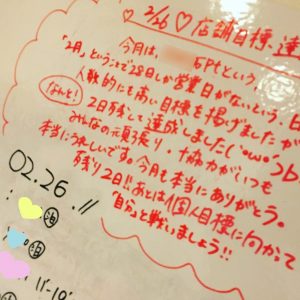 2/26 ♡ 店舗目標 達
今月は、 万Ptという
「2月」ということで28日しか営業日がないという、日
人数的にも高い目標を掲げましたが
なんと!
2日残して達成しました(*'ω'*)
みんなの頑張り・協力がいつも
本当にうれしいです。今月も本当にありがとう。
残り2日!!あとは個人目標に向かって
「自分」と戦いましょう!!
02.26.//
:
泊
:
泊
: